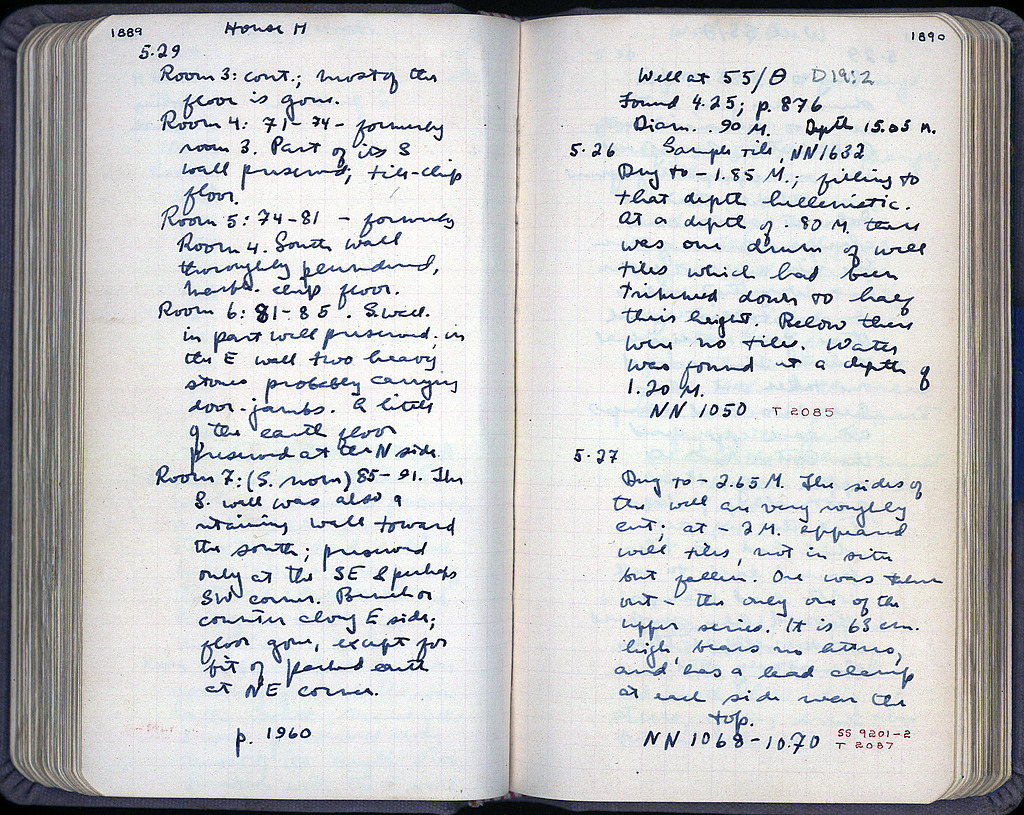 1889
House H
5.29
Room 3: cont.; most of the
floor is gone.
Room 4: 71-74- formerly
room 3. Part of its S
wall preserved; tile-chip
floor.
Room 5: 74-81 - formerly
Room 4. South wall
thoroughly plundered,
marble chip floor.
Room 6: 81-85. S. wall
in part well preserved. in
the E wall two heavy
stones probably carrying
door-jambs. A little
of the earth floor
preserved at the N side.
Room 7: (S. room) 85-91. The
S. wall was also a
retaining wall toward
the south; preserved
only at the SE & perhaps
SW corner. Bench or
counter along E side;
floor gone, except for
bit of packed earth
at NE corner.
p. 1960
1890
Well at 55/Θ D19:2
Found 4.25; p. 876
Diam. .90 M. Depth 15.05 m.
5.26 Sample tile, NN1632
Dug to -1.85 M.; filling to
that depth hellenistic.
At a depth of .80 M. there
was one drum of well
tiles which had been
trimmed down to half
their height. Below there
were no tiles. Water
was found at a depth of
1.20 M.
NN 1050 T 2085
5.27
Dug to -2.65 M. The sides of
the well are very roughly
cut; at -2 M. appeared
well tiles, not in situ
but fallen. One was taken
out - the only one of the
upper series. It is 63 cm.
high, bears no letters,
and has a lead clamp
at each side near the
top.
NN 1068-1070 SS 9201-2
T 2087